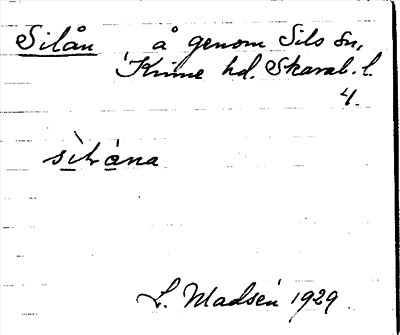 Silån å genom Sils sn,
Kinne hd. Skarab. l.
4.
L. Madsén 1929